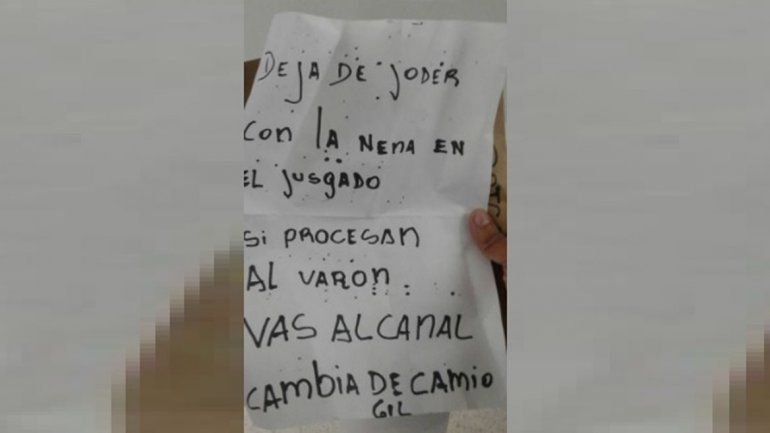 DEJA DE JODER
CON LA NENA EN
EL JUSGADO
Si PROCESAN
AL VARON..
VAS AL CANAL
CAMBIA DE CAMIO
GIL